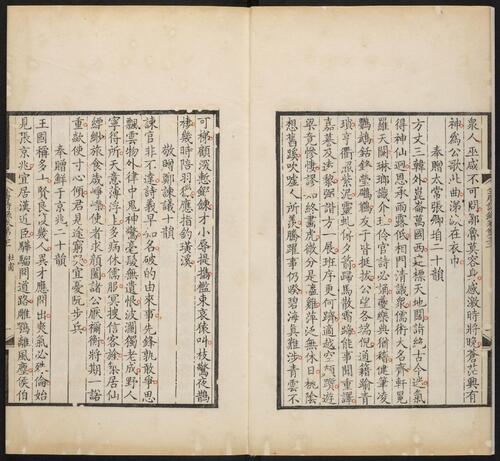 泉人巫咸不可問鄒魯莫容身感激時將晚蒼茫興有
神為公歌此曲涕淚在衣巾
奉贈太常張卿垍二十韻
方丈三韓外崑崙萬國西建標天地闊詣絕古今迷氣
得神仙迥恩承雨露低相門清議眾儒術大名齊軒冕
羅天闕琳瑯識介珪伶官詩必誦夔樂典猶稽健筆凌
鸚鵡銛鋒瑩鸊鵜友于皆挺拔公望各端倪通籍踰青
瑣亨衢照紫泥靈虬傳夕箭歸馬散霜蹄能事聞重譯
嘉謨及遠黎弼諧方一展班序更何躋適越空顛躓遊
梁竟慘悽謬知終畫虎微分是醯雞萍泛無休日桃陰
想舊蹊吹噓人所羨騰躍事仍睽碧海真難涉青雲不
杜甫
可梯顧深慙鍛鍊才小辱提攜檻束哀猿叫枝驚夜鵲
棲幾時陪羽獵應指釣璜溪
敬贈鄭諫議十韻
諫官非不達詩義早知名破的由來事先鋒孰敢爭思
飄雲物外律中鬼神驚毫髮無遺恨波瀾獨老成野人
寧得所天意薄浮生多病休儒服冥搜信客旌築居仙
縹緲旅食歲崢嶸使者求顏闔諸公厭禰衡將期一諾
重歘使寸心傾君見途窮哭宜憂阮步兵
奉贈鮮于京兆二十韻
王國稱多士賢良復幾人異才應間出爽氣必殊倫始
見張京兆宜居漢近臣驊騮開道路雕鶚離風塵侯伯